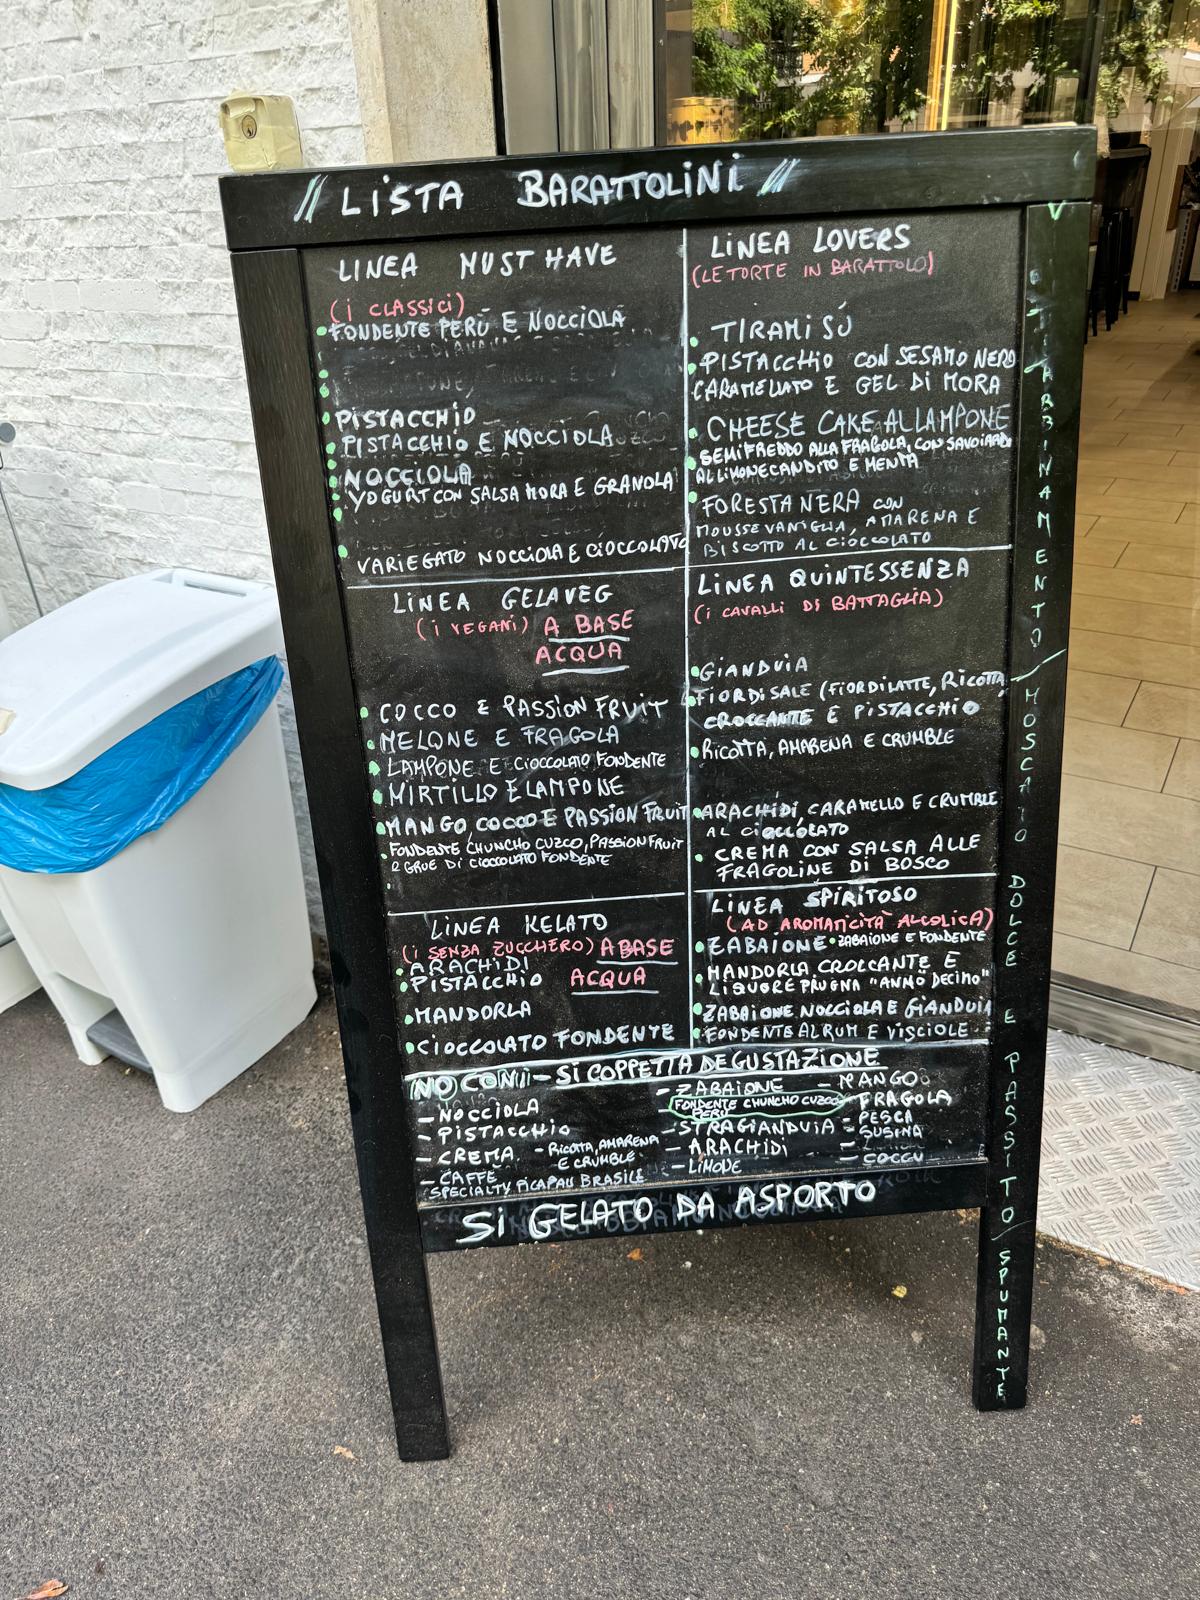 // LISTA BARATTOLINI //
LINEA MUST HAVE
(i CLASSICI)
FONDENTE PERÙ E NOCCIOLA
PISTACCHIO
PISTACCHIO E NOCCIOLA
NOCCIOLA
YOGURT CON SALSA MORA E GRANOLA
VARIEGATO NOCCIOLA E CIOCCOLATO
LINEA LOVERS
(LE TORTE IN BARATTOLO)
TIRAMI SÙ
PISTACCHIO CON SESAMO NERO
CARAMELLATO E GEL DI MORA
CHEESE CAKE AL LAMPONE
SEMIFREDDO ALLA FRAGOLA, CON SAVOIARDI
AL LIMONE CANDITO E MENTA
FORESTA NERA CON
MOUSSE VANIGLIA, AMARENA E
BISCOTTO AL CIOCCOLATO
LINEA GELAVEG
(i VEGANI) A BASE
ACQUA
COCCO E PASSION FRUIT
MELONE E FRAGOLA
LAMPONE E CIOCCOLATO FONDENTE
MIRTILLO E LAMPONE
MANGO, COCCO E PASSION FRUIT
FONDENTE CHUNCHO CUZCO, PASSION FRUIT
E GRUE DI CIOCCOLATO FONDENTE
LINEA QUINTESSENZA
(i CAVALLI DI BATTAGLIA)
GIANDUIA
FIOR DI SALE (FIORDILATTE, RICOTTA,
CROCCANTE E PISTACCHIO
RICOTTA, AMARENA E CRUMBLE
ARACHIDI CARAMELLO E CRUMBLE
AL CIOCCOLATO
CREMA CON SALSA ALLE
FRAGOLINE DI BOSCO
LINEA KELATO
(i SENZA ZUCCHERO) A BASE
ARACHIDI
PISTACCHIO ACQUA
MANDORLA
CIOCCOLATO FONDENTE
LINEA SPIRITOSO
(AD AROMATICITÀ ALCOLICA)
ZABAIONE • ZABAIONE E FONDENTE
MANDORLA CROCCANTE E
LIQUORE PRUGNA "ANNO DECIMO"
ZABAIONE NOCCIOLA E GIANDUIA
FONDENTE AL RUM E VISCIOLE
NO CONI - SI COPPETTA DEGUSTAZIONE
- NOCCIOLA
- PISTACCHIO
- CREMA
- RICOTTA, AMARENA
E CRUMBLE
- CAFFÈ
SPECIALTY PICAPAU BRASILE
- ZABAIONE
FONDENTE CHUNCHO CUZCO
PERÙ
- STRAGIANDUIA
- ARACHIDI
- LIMONE
- MANGO
FRAGOLA
- PESCA
- SUSINA
- COCCO
SI GELATO DA ASPORTO
ABBINAMENTO/ MOSCATO DOLCE E PASSITO/ SPUMANTE